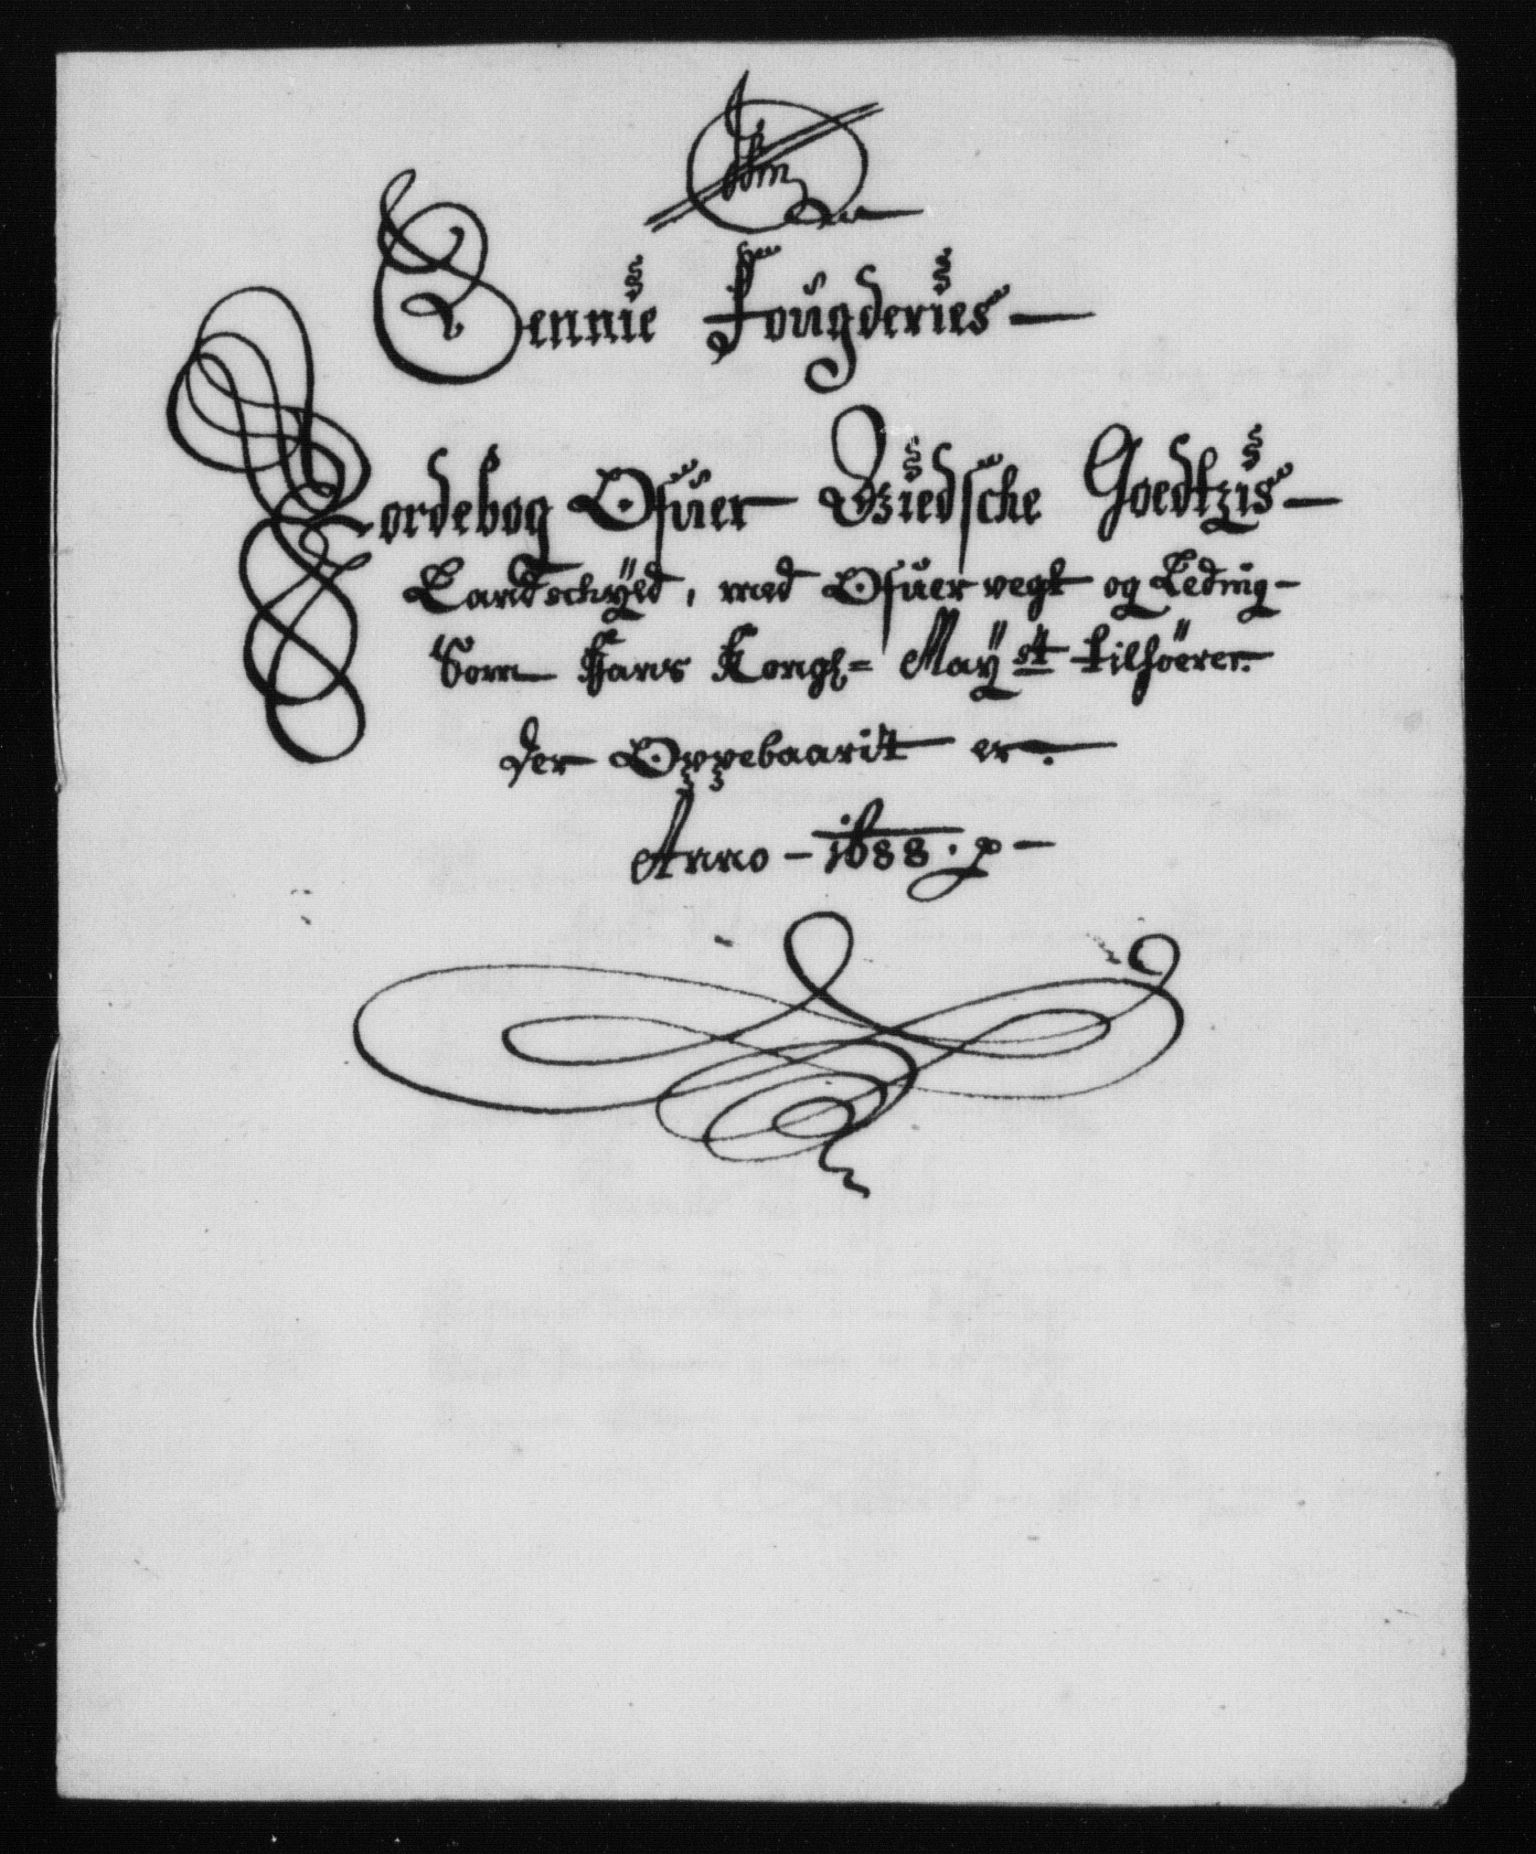 Sennie Fougderies
Jordebog Ofuer Giedsche Goedtzis
Landschÿld, med Ofuer vegt og Leding
Som Hans Kongl= Maÿst tilhöerer
Der Oppebaarit er.
Anno - 1688 . p